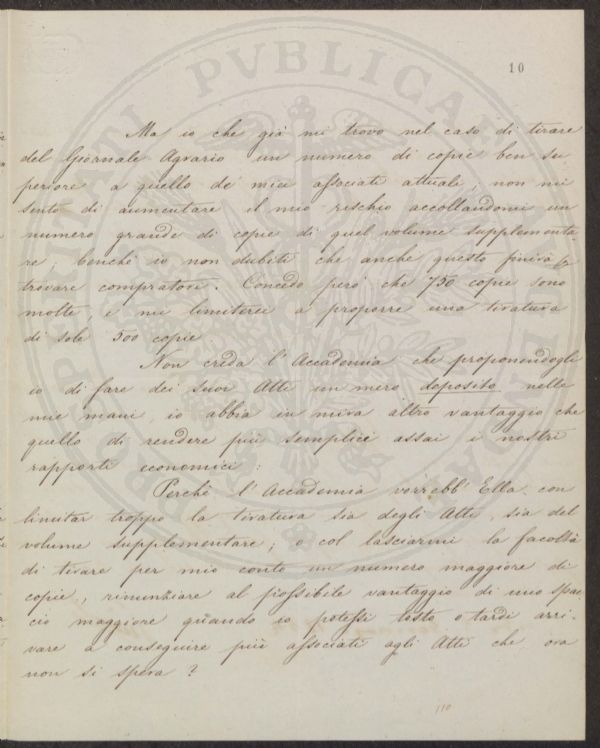 10
Ma io che già mi trovo nel caso di tirare
del Giornale Agrario un numero di copie ben su
periore a quello de' miei associati attuali, non mi
sento di aumentare il mio rischio accollandomi un
numero grande di copie di quel volume supplementa
re; benchè io non dubiti che anche questo finirà
trovare compratori. Concedo però che 750 copie sono
molte, e mi limiterei a proporre una tiratura
di sole 500 copie
Non creda l'Accademia che proponendogli
io di fare dei suoi Atti un mero deposito nelle
mie mani, io abbia in mira altro vantaggio che
quello di rendere più semplici assai i nostri
rapporti economici:
Perchè l'Accademia vorrebb'Ella con
limitar troppo la tiratura sia degli Atti, sia del
volume supplementare; o col lasciarmi la facoltà
di tirare per mio conto un numero maggiore di
copie, rinunziare al possibile vantaggio di uno spac
cio maggiore quando io potessi tosto o tardi arri-
vare a conseguire più associati agli Atti che ora
non si spera?
110
PUBLICA